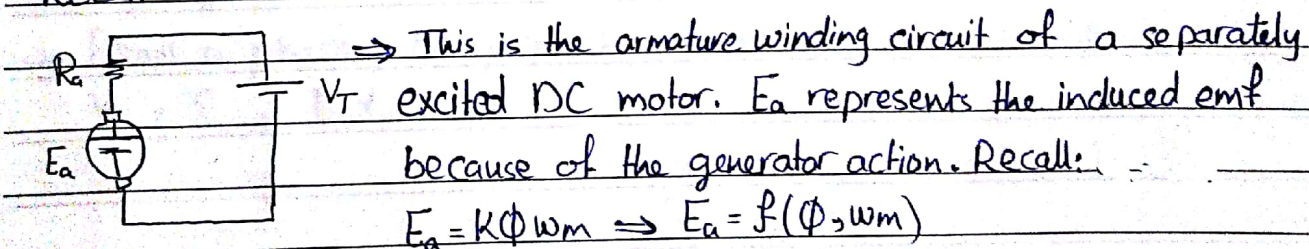 Ra
Ea
VT
⇒ This is the armature winding circuit of a separately
excited DC motor. Ea represents the induced emf
because of the generator action. Recall:
Ea = KΦwm ⇒ Ea = f(Φ, wm)